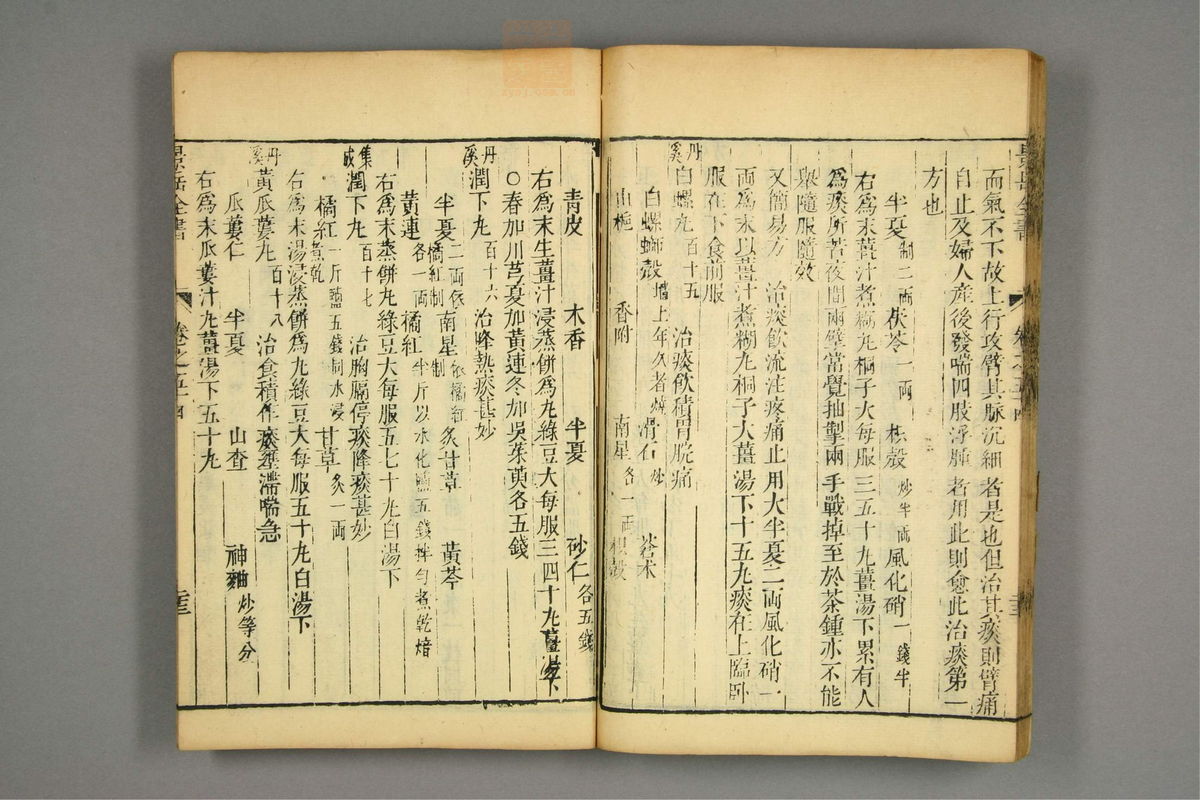 而氣不下故上行攻臂其脉沉細者是也但治其痰則臂痛
自止及婦人產後發喘四肢浮腫者用此則愈此治痰第一
方也
半夏製二兩 茯苓一兩 枳殼炒半兩 風化硝一錢半
右為末薑汁煮糊丸桐子大每服三五十丸薑湯下累有人
為痰所苦夜間兩臂常覺抽掣兩手戰掉至於茶鍾亦不能
舉隨服隨效
又簡易方 治痰飲流注疼痛止用大半夏二兩風化硝一
兩為末以薑汁煮糊丸桐子大薑湯下十五丸痰在上臨卧
服在下食前服
丹溪白螺丸百十五 治痰飲積胃脘痛
白螺螄殼墻上年久者燒 滑石炒 蒼术
山梔 香附 南星各一兩 枳殼
青皮 木香 半夏 砂仁各五錢
右為末生薑汁浸蒸餅為丸綠豆大每服三四十丸薑湯下
○春加川芎夏加黃連冬加吳茱萸各五錢
丹溪潤下丸百十六 治降熱痰甚妙
半夏二兩依橘紅制 南星依橘紅制 炙甘草 黃芩
黃連各一兩 橘紅半斤以水化鹽五錢拌勻煮乾焙
右為末蒸餅丸綠豆大每服五七十丸白湯下
集成潤下丸百十七 治胸膈停痰降痰甚妙
橘紅一斤鹽五錢同水浸煮乾 甘草炙一兩
右為末湯浸蒸餅為丸綠豆大每服五十丸白湯下
丹溪黃瓜蔞丸百十八 治食積作痰壅滯喘急
瓜蔞仁 半夏 山查 神麯炒等分
右為末瓜蔞汁丸薑湯下五十丸
景岳全書 卷之五十四
景岳全書 卷之五十四